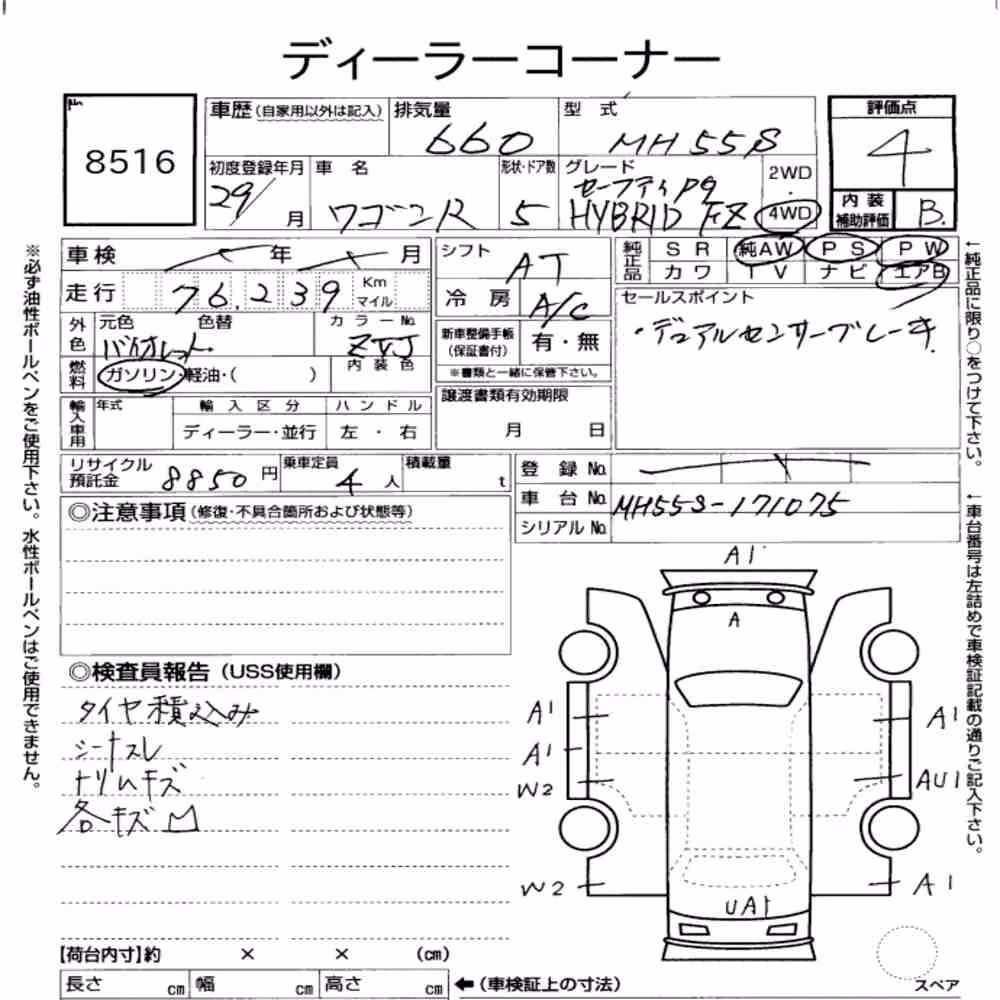 ディーラーコーナー
8516
車歴(自家用以外は記入) 排気量 660 型式 MH55S 評価点 4
初度登録年月 29/月 車名 ワゴンR 形状・ドア数 5 グレード セーフティPG HYBRID FZ 2WD・4WD 内装補助評価 B.
車検 年 月
走行 76.239 Km マイル
外色 元色 バイオレット 色替 カラーNo. ZVJ
燃料 ガソリン・軽油・( ) 内装色
輸入車用 年式 輸入区分 ディーラー・並行 ハンドル 左・右
シフト AT
冷房 A/C
新車整備手帳(保証書付) 有・無
※書類と一緒に保管下さい。
譲渡書類有効期限 月 日
純正品 SR 純AW PS PW
カワ TV ナビ エアB
セールスポイント
・デュアルセンサーブレーキ
リサイクル預託金 8850円 乗車定員 4人 積載量 t
登録No.
車台No. MH55S-171075
シリアルNo.
◎注意事項(修復・不具合箇所および状態等)
◎検査員報告(USS使用欄)
タイヤ積込み
シートスレ
トリムキズ
各キズ凹
A1
A
A1 A1
A1
W2 AU1
W2 A1
UA1
【荷台内寸】約 × × (cm)
長さ cm 幅 cm 高さ cm ←(車検証上の寸法)
スペア
※必ず油性ボールペンをご使用下さい。水性ボールペンはご使用できません。
←純正品に限り○をつけて下さい。
←車台番号は左詰めで車検証記載の通りご記入下さい。